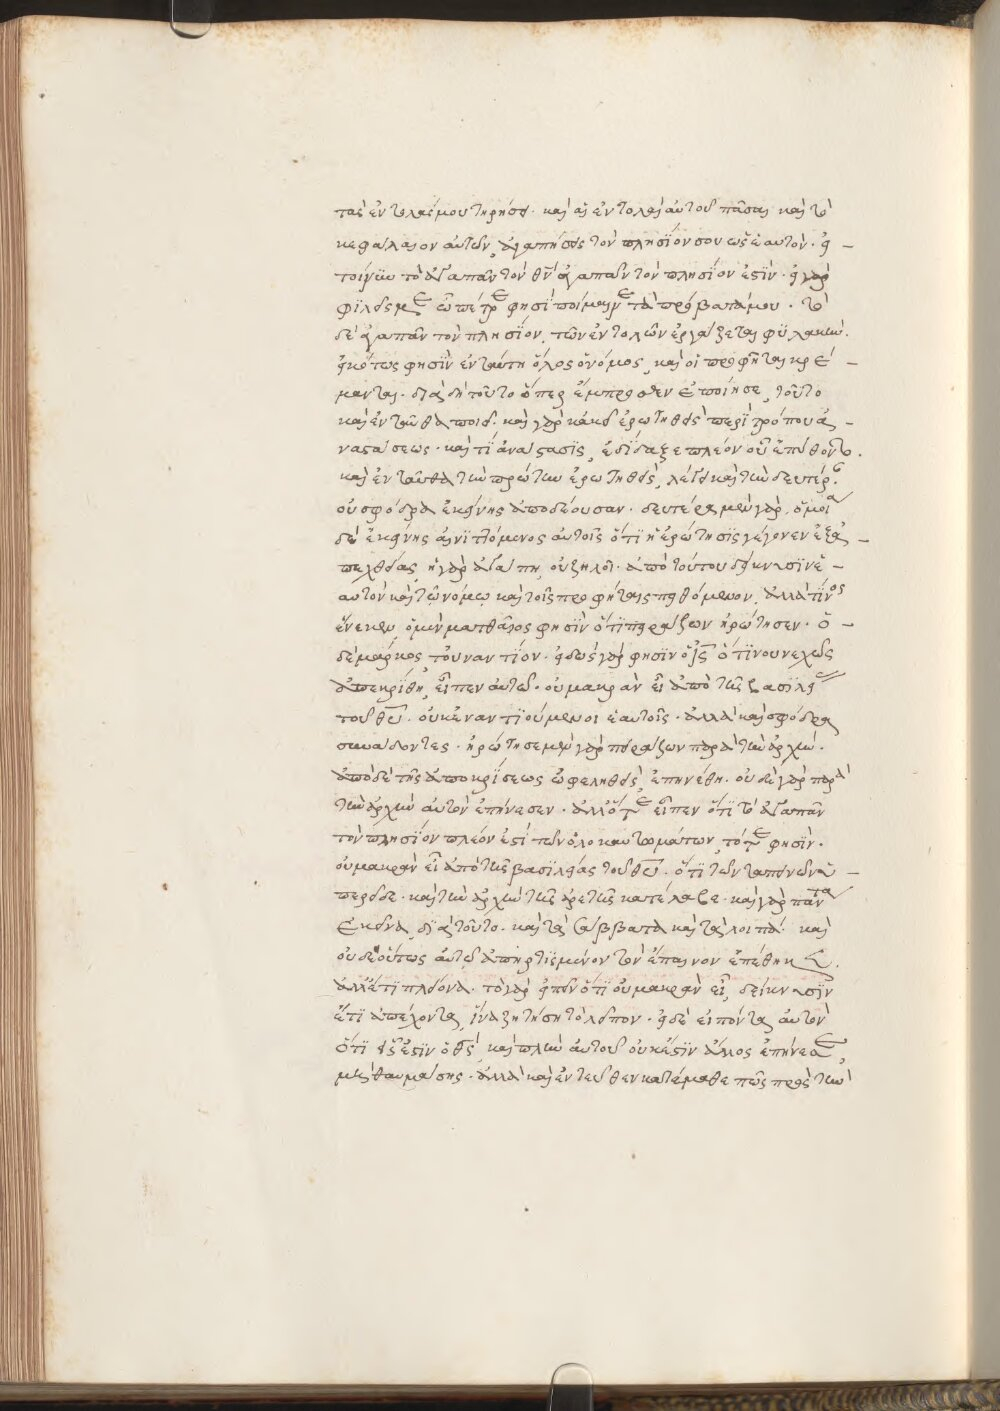 τὰς ἐντολάς μου τηρήσει· καὶ αἱ ἐντολαὶ αὐτοῦ πᾶσαι καὶ τὸ
κεφάλαιον αὐτῶν, ἀγαπήσεις τὸν πλησίον σου ὡς ἑαυτόν· εἰ
τοίνυν τὸ ἀγαπᾶν τὸν θν ἀγαπᾶν τὸν πλησίον ἐστίν· εἰ γὰρ
φιλεῖς με ὦ πέτρε φησὶ ποίμαινε τὰ πρόβατά μου· τὸ
δὲ ἀγαπᾶν τὸν πλησίον, τῶν ἐντολῶν ἐργάζεται φυλακήν·
εἰκότως φησὶν ἐν ταύτῃ ὅλος ὁ νόμος, καὶ οἱ προφῆται κρέ
μανται· διὰ δὴ τοῦτο ὅπερ ἔμπροσθεν ἐποίησε, τοῦτο
καὶ ἐνταῦθα ποιεῖ· καὶ γὰρ κἀκεῖ ἐρωτηθεὶς περὶ τρόπου ἀ
ναστάσεως· καὶ τί ἀνάστασις, ἐδίδαξε πλέον οὗ ἐπύθοντο·
καὶ ἐνταῦθα τὴν πρώτην ἐρωτηθεὶς, λέγει καὶ τὴν δευτέραν
οὐ σφόδρα ἐκείνης ἀποδέουσαν· δευτέρα μὲν γὰρ, ὁμοία
δὲ ἐκείνης αἰνιττόμενος αὐτοῖς ὅτι ἡ ἐρώτησις γέγονεν ἐξ ἀ
πεχθείας, ἡ γὰρ ἀγάπη, οὐ ζηλοῖ· ἀπὸ τούτου δείκνυσιν ἑ
αυτὸν καὶ τῷ νόμῳ καὶ τοῖς προφήταις πειθόμενον, ἀλλὰ τίνος
ἕνεκεν, ὁ μὲν ματθαῖος φησὶν ὅτι πειράζων ἠρώτησεν· ὁ
δὲ μάρκος τοὐναντίον· εἰδὼς γὰρ φησὶν ὁ ις ὅτι νουνεχῶς
ἀπεκρίθη, εἶπεν αὐτῷ· οὐ μακρὰν εἶ ἀπὸ τῆς βασιλείας
τοῦ θυ· οὐκ ἐναντιούμενοι ἑαυτοῖς· ἀλλὰ καὶ σφόδρα
συνάδοντες· ἠρώτησε μὲν γὰρ πειράζων παρὰ τὴν ἀρχήν·
ἀπὸ δὲ τῆς ἀποκρίσεως ὠφεληθεὶς, ἐπηνέθη· οὐδὲ γὰρ παρὰ
τὴν ἀρχὴν αὐτὸν ἐπήνεσεν· ἀλλ' ὅτε εἶπεν ὅτι τὸ ἀγαπᾶν
τὸν πλησίον πλέον ἐστὶ τῶν ὁλοκαυτωμάτων, τότε φησὶν·
οὐ μακρὰν εἶ ἀπὸ τῆς βασιλείας τοῦ θυ· ὅτι τῶν ταπεινῶν ὑ
περεῖδε· καὶ τὴν ἀρχὴν τῆς ἀρετῆς κατέλαβε· καὶ γὰρ πάντα
ἐκεῖνα, διὰ τοῦτο· καὶ τὰ σάββατα καὶ τὰ λοιπά· καὶ
οὐδὲ οὕτως αὐτῷ ἀπηρτισμένον τὸν ἔπαινον ἐπέθηκεν·
ἀλλ' ἔτι πλείονα· τὸ γὰρ εἰπεῖν ὅτι οὐ μακρὰν εἶ, δείκνυσιν
ἔτι ἀπέχοντα, ἵνα ζητήσῃ τὸ λεῖπον· εἰ δὲ εἰπόντα αὐτὸν
ὅτι εἷς ἐστὶν ὁ θς, καὶ πλὴν αὐτοῦ οὐκ ἔστιν ἄλλος ἐπήνεσε,
μὴ θαυμάσῃς· ἀλλὰ καὶ ἐντεῦθεν κατάμαθε πῶς πρὸς τὴν